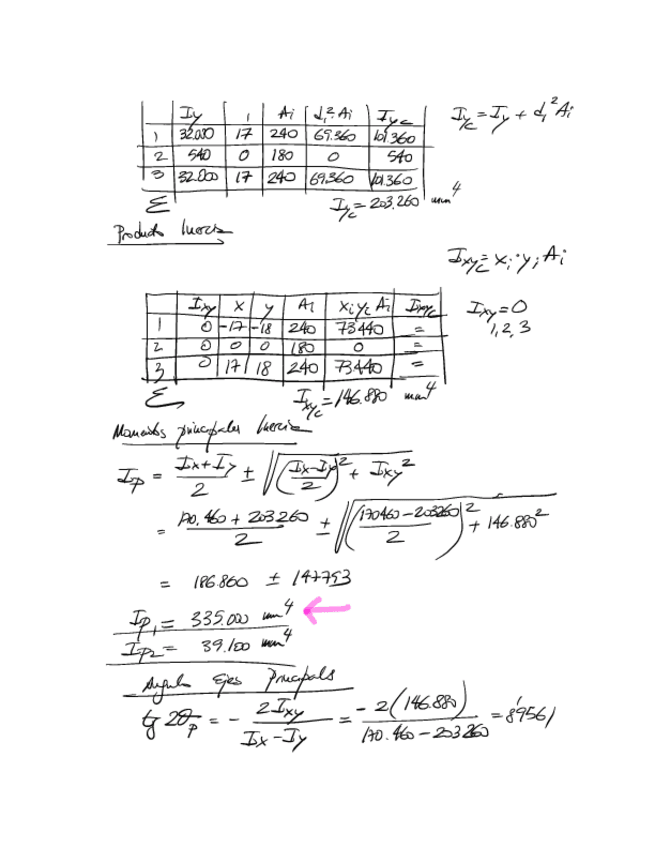 Iy | 1 | Ai | d1² Ai | Iyc
1 | 32.000 | 17 | 240 | 69.360 | 101.360
Iyc = Iy + d1² Ai
2 | 540 | 0 | 180 | 0 | 540
3 | 32.000 | 17 | 240 | 69.360 | 101.360
Σ Iyc = 203.260 mm⁴
Producto Inercia
Ixyc = xi · yi Ai
Ixy | x | y | Ai | xi yi Ai | Ixyc
1 | 0 | -17 | -18 | 240 | 73440 | =
Ixy = 0
1, 2, 3
2 | 0 | 0 | 0 | 180 | 0 | =
3 | 0 | 17 | 18 | 240 | 73440 | =
Σ Ixyc = 146.880 mm⁴
Momentos principales Inercia
Ip = (Ix + Iy)/2 ± √(((Ix - Iy)/2)² + Ixy²)
= (170.460 + 203260)/2 ± √(((170460 - 203260)/2)² + 146.880²)
= 186.860 ± 147793
Ip1 = 335.000 mm⁴ ←
Ip2 = 39.100 mm⁴
Angulo Ejes Principals
tg 2θp = - 2Ixy/(Ix - Iy) = - 2(146.880)/(170.460 - 203260) = 8'9561